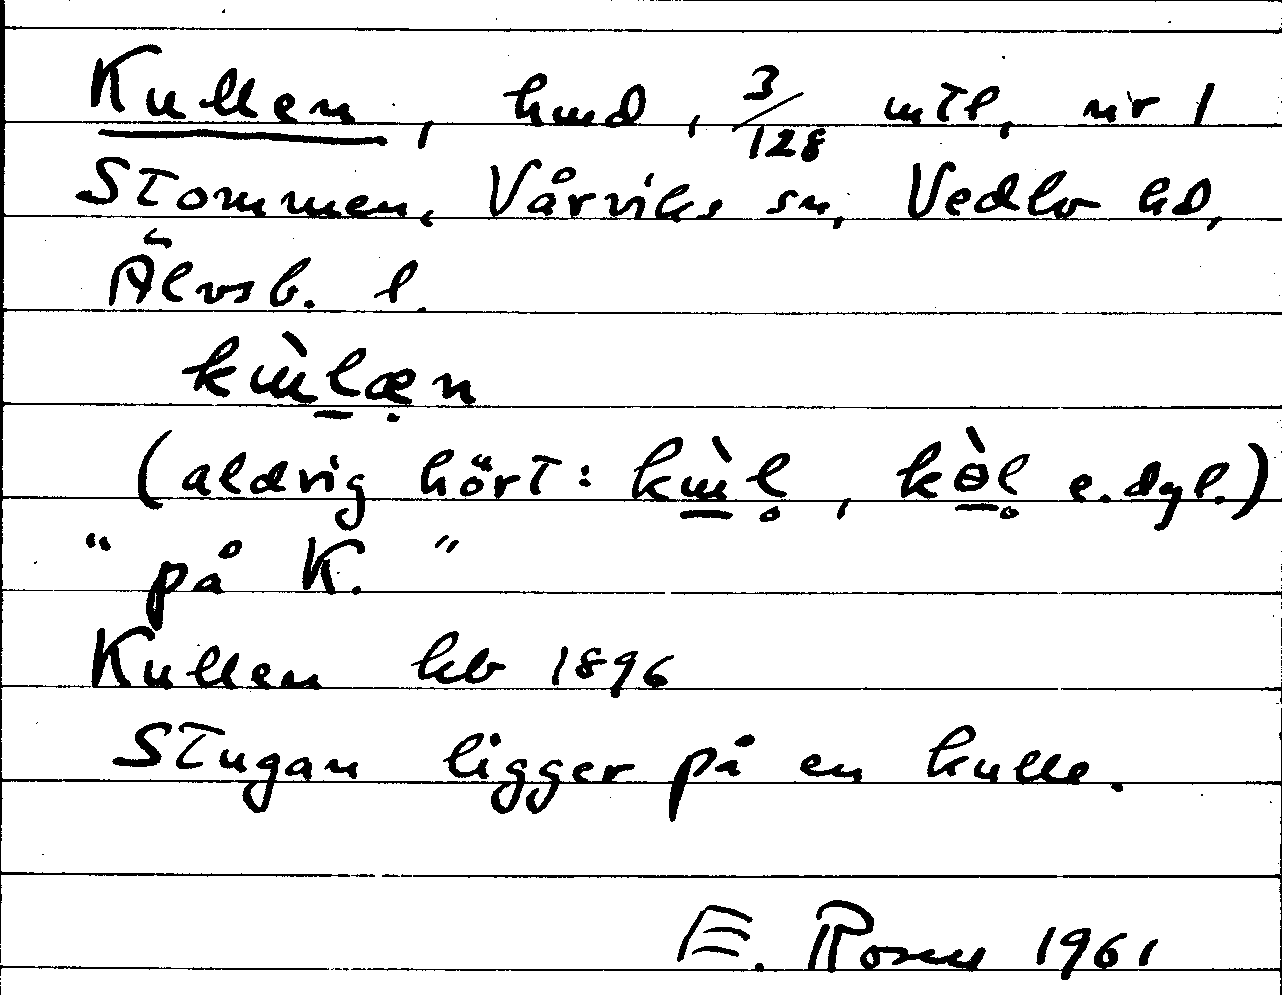 Kullen, hmd, 3/128 mtl, nr 1
Stommen, Vårviks sn, Vedbo hd,
Älvsb. l.
(aldrig hört: e. dyl.)
"på K."
Kullen kb 1896
Stugan ligger på en kulle.
E. Rosne 1961